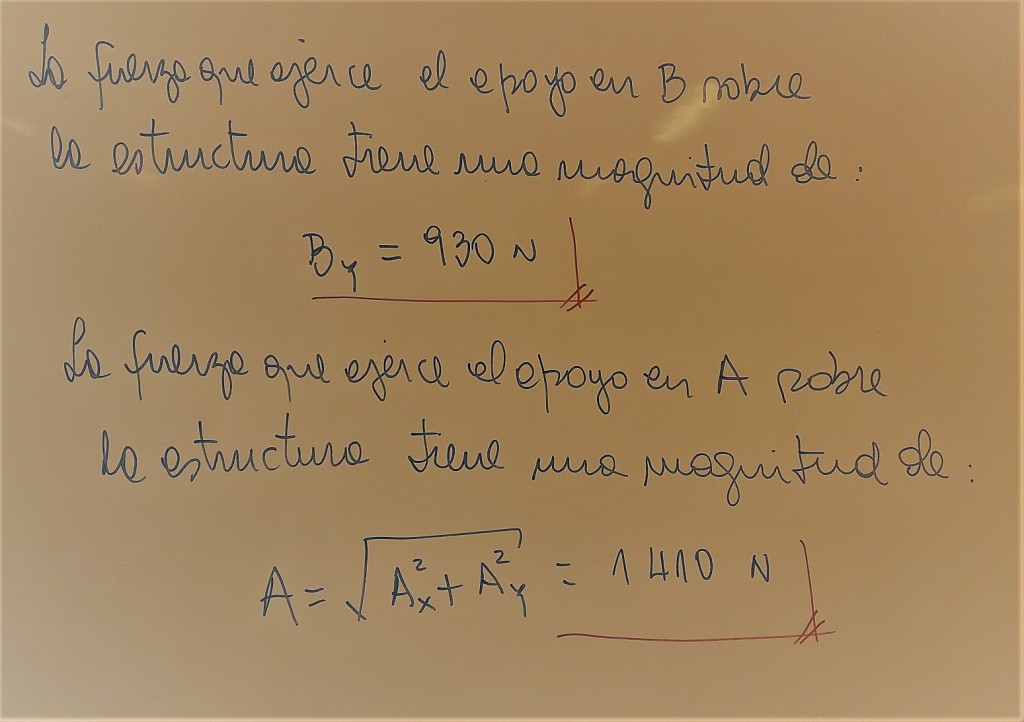 La fuerza que ejerce el apoyo en B sobre
la estructura tiene una magnitud de:
B_y = 930 N
La fuerza que ejerce el apoyo en A sobre
la estructura tiene una magnitud de:
A = √(A_x² + A_y²) = 1410 N